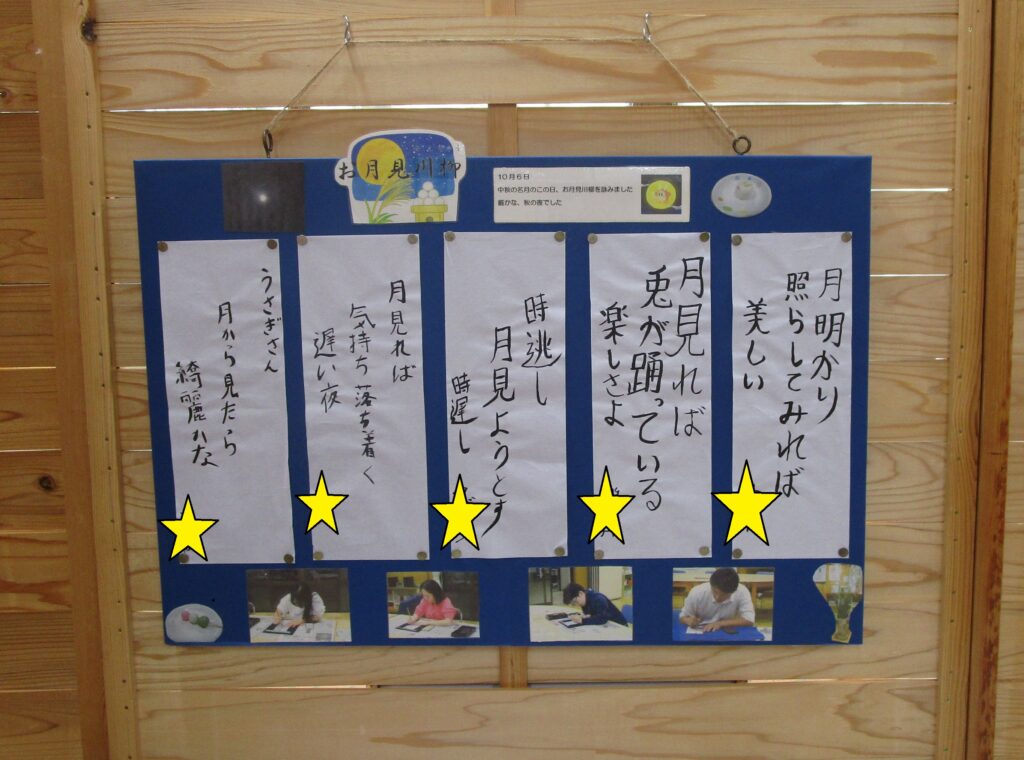 お月見川柳
10月6日
中秋の名月のこの日、お月見川柳を詠みました
厳かな、秋の夜でした
月明かり
照らしてみれば
美しい
月見れば
兎が踊っている
楽しさよ
時逃し
月見ようとす
時遅し
月見れば
気持ち落ち着く
遅い夜
うさぎさん
月から見たら
綺麗かな